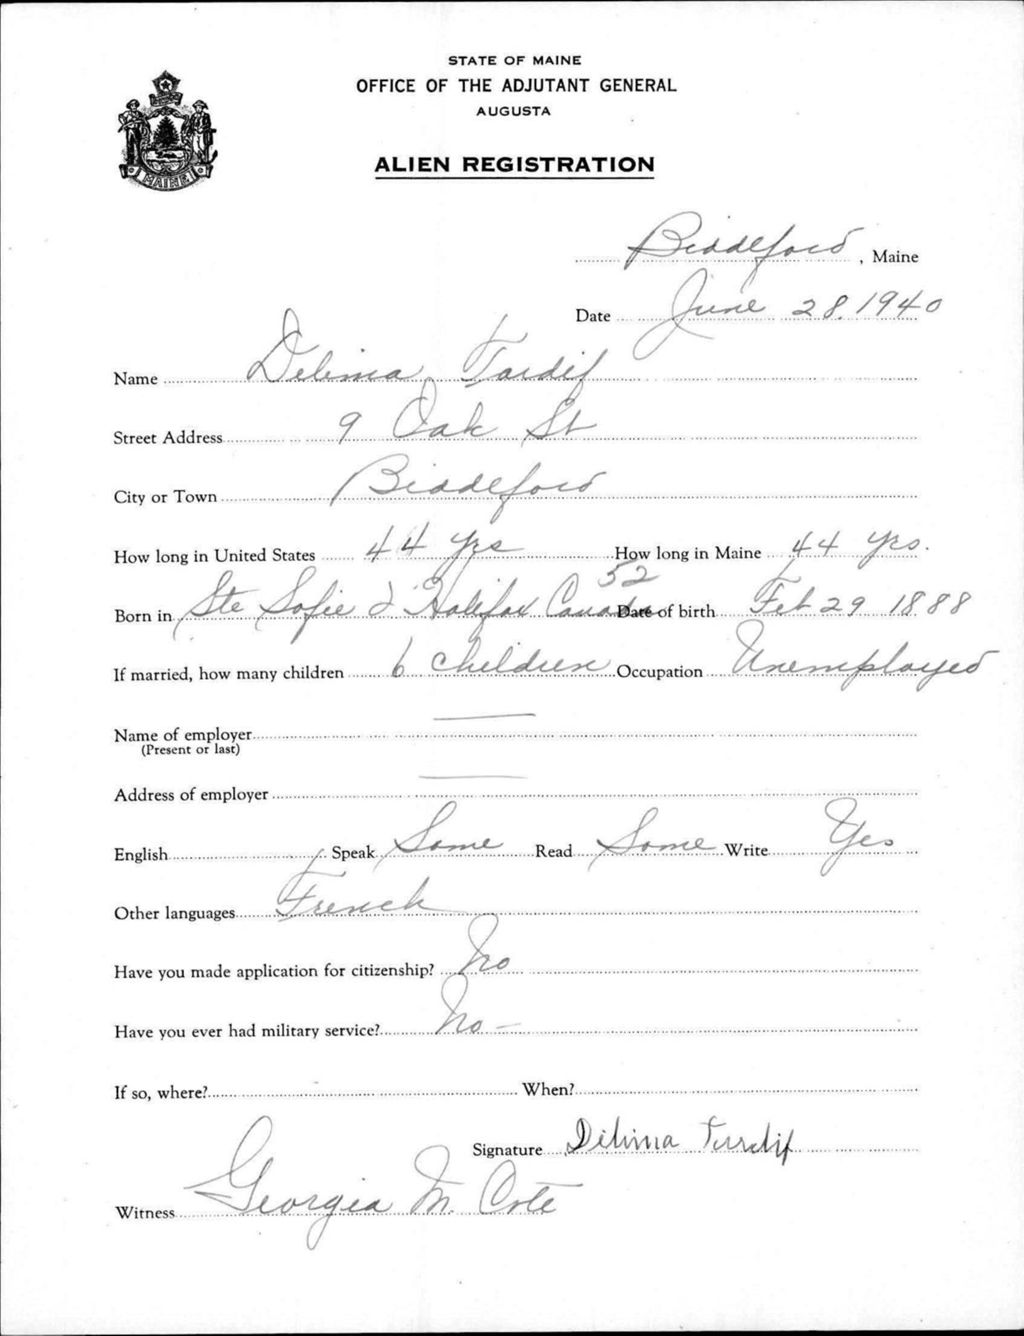 STATE OF MAINE
OFFICE OF THE ADJUTANT GENERAL
AUGUSTA
ALIEN REGISTRATION
MAINE
Biddeford, Maine
Date June 28, 1940
Name Delima Tardif
Street Address 9 Oak St
City or Town Biddeford
How long in United States 44 yrs How long in Maine 44 yrs.
52
Born in Ste Sofie d'Halifax Canada Date of birth Feb 29 1888
If married, how many children 6 children Occupation Unemployed
Name of employer —
(Present or last)
Address of employer —
English Speak Some Read Some Write Yes
Other languages French
Have you made application for citizenship? No
Have you ever had military service? No –
If so, where? When?
Signature Délima Turdif
Witness Georgia M. Cote